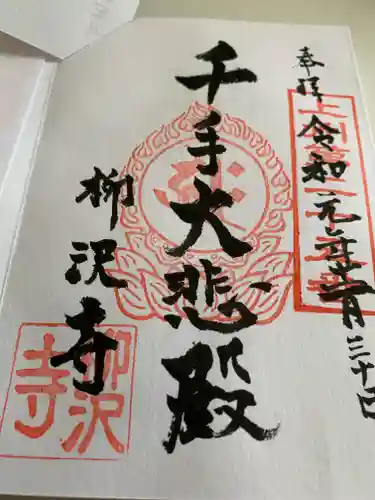 奉拝
令和元年十一月三十日
千手大悲殿
柳沢寺
柳沢
寺